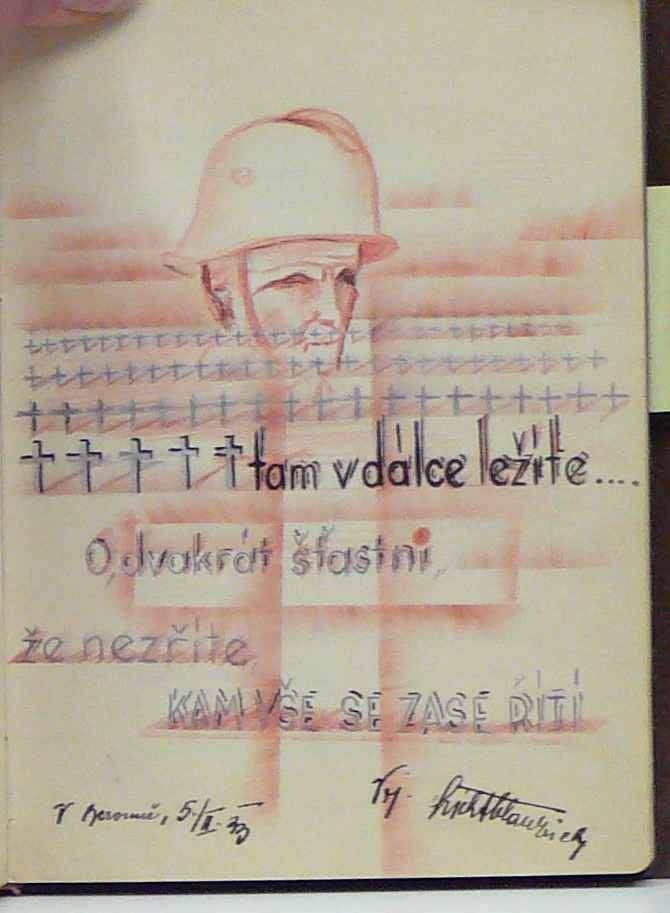 tam v dálce ležíte....
O, dvakrát šťastni,
že nezříte,
KAM VŠE SE ZASE ŘÍTÍ
V Berouně, 5./II. 33